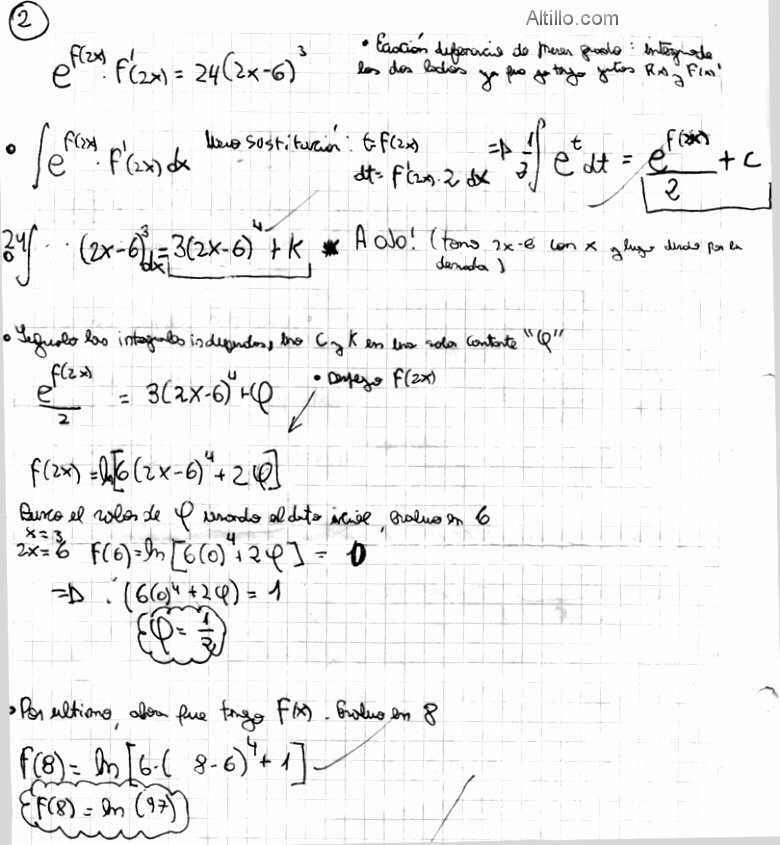 Altillo.com
2
e^{f(2x)} · f'(2x) = 24(2x-6)^3
• Ecuación diferencial de primer grado: integrando
los dos lados ya que ya tengo juntos F(x) y F(x)'
• ∫ e^{f(2x)} · f'(2x) dx uso sustitución: t = f(2x) ⇒ 1/2 ∫ e^t dt = e^{f(2x)}/2 + C
dt = f'(2x) · 2 dx
24 ∫ (2x-6)^3 dx = 3(2x-6)^4 + K * A OJO! (tomo 2x-6 con x y luego divido por la
derivada)
• Igualo las integrales, C y K en una sola constante "φ"
e^{f(2x)}/2 = 3(2x-6)^4 + φ • Despejo f(2x)
f(2x) = ln[6(2x-6)^4 + 2φ]
Busco el valor de φ usando el dato, evaluo en 6
x = 3
2x = 6 f(6) = ln[6(0)^4 + 2φ] = 0
⇒ (6(0)^4 + 2φ) = 1
φ = 1/2
• Por ultimo, ahora que tengo F(x). Evaluo en 8
f(8) = ln[6·(8-6)^4 + 1]
f(8) = ln(97)